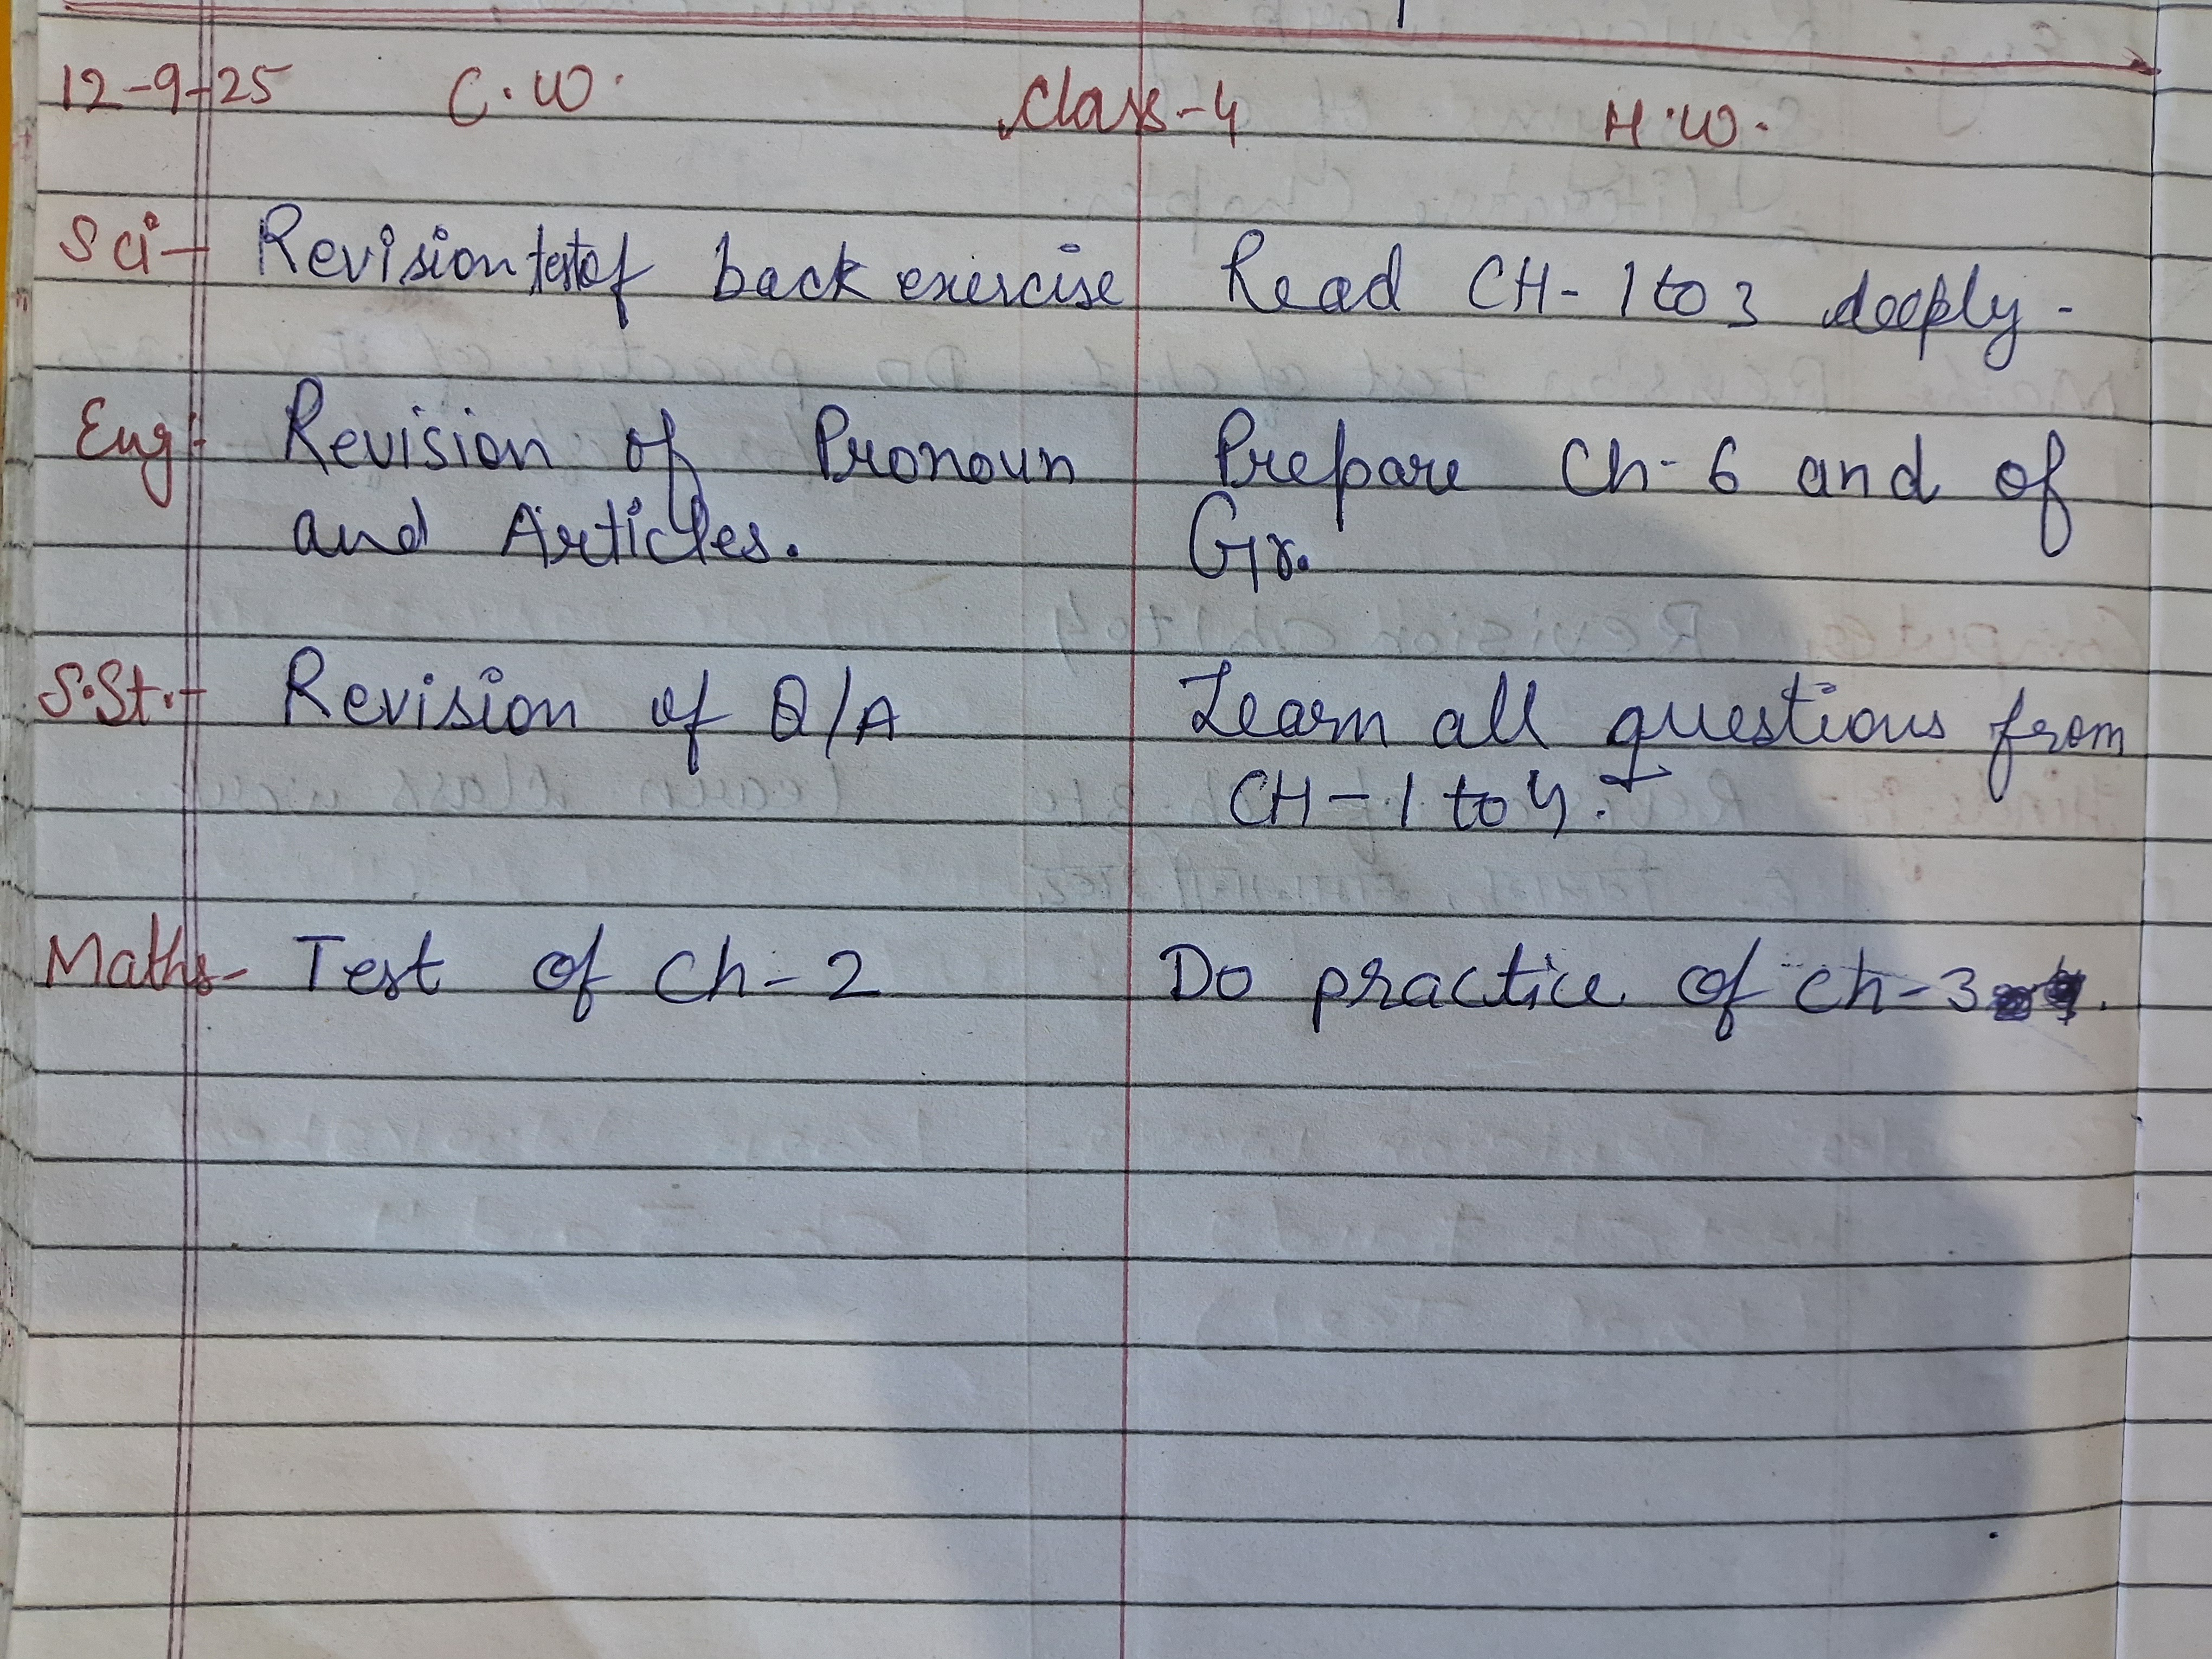 12-9-25 C.W. Class-4 H.W.
Sci- Revision test of back exercise Read CH-1 to 3 deeply.
Eng- Revision of Pronoun Prepare Ch-6 and of
and Articles. Gr.
S.St.- Revision of Q/A Learn all questions from
CH-1 to 4.
Maths- Test of Ch-2 Do practice of Ch-3